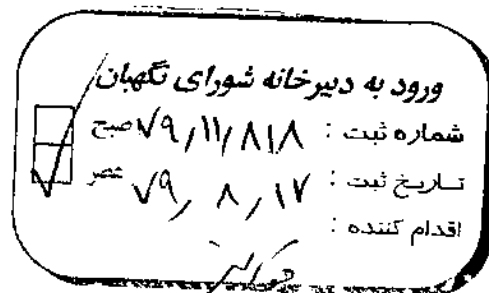 ورود به دبیرخانه شورای نگهبان
شماره ثبت : ۷۹/۱۱/۸۱۸ صبح
تاریخ ثبت : ۷۹/۸/۱۷ عصر
اقدام کننده :